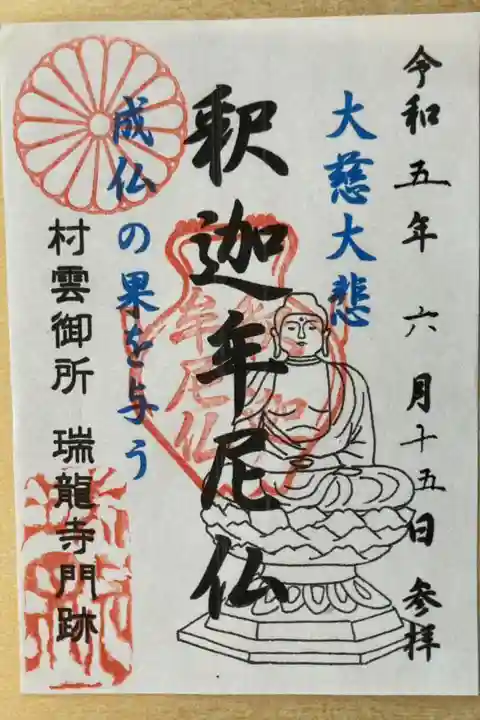 令和五年 六月十五日 参拝
大慈大悲
釈迦牟尼仏
成仏の果を与う
村雲御所 瑞龍寺門跡
牟尼仏